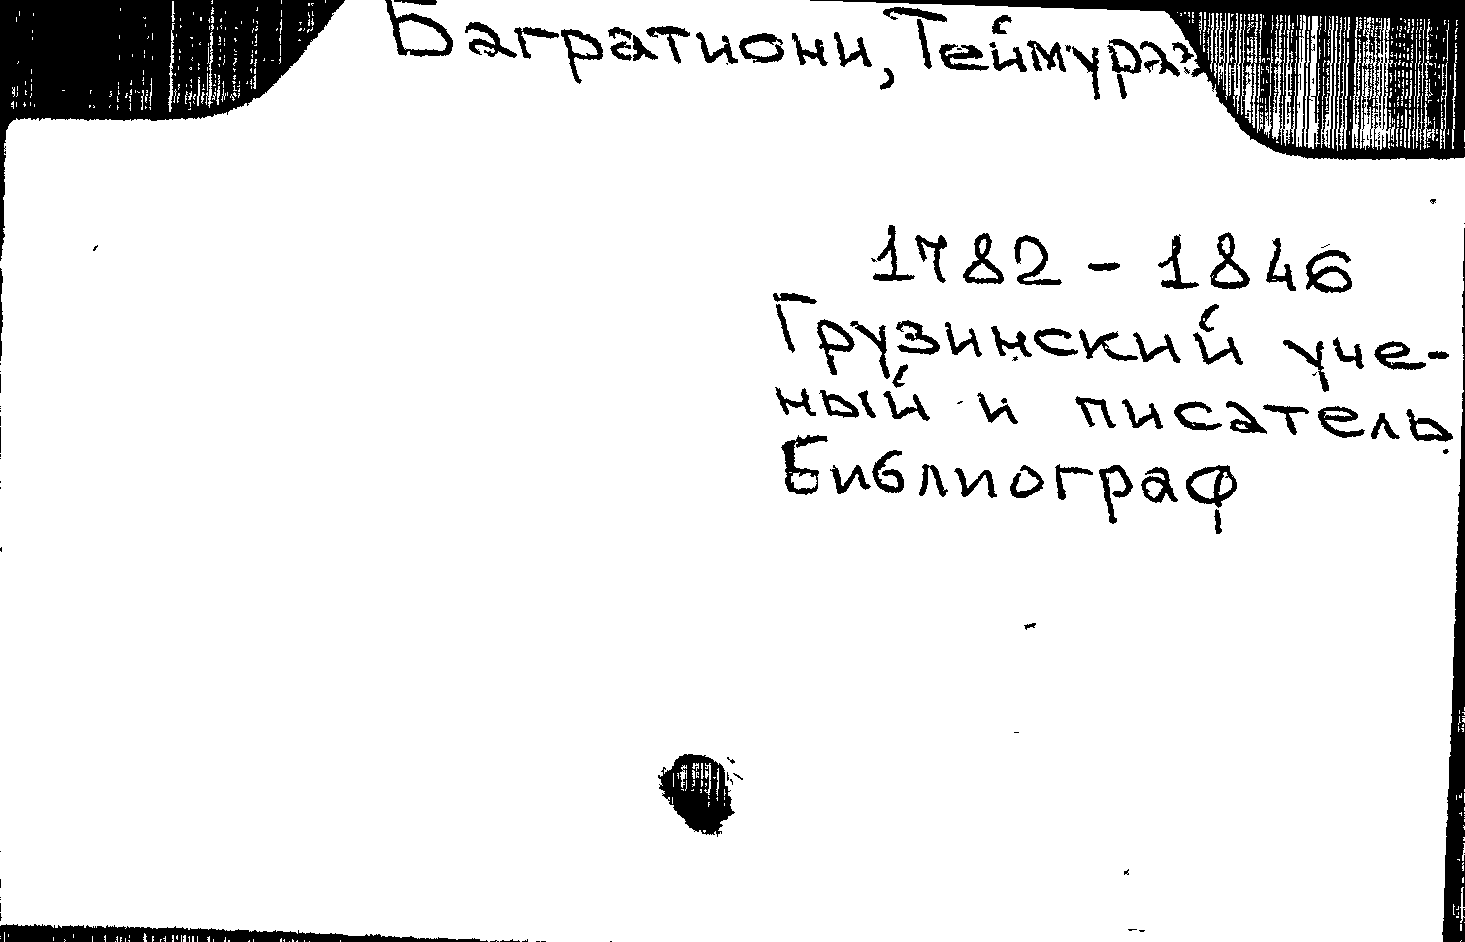 Багратиони, Теймураз
1782 - 1846
Грузинский уче-
ный и писатель.
Библиограф